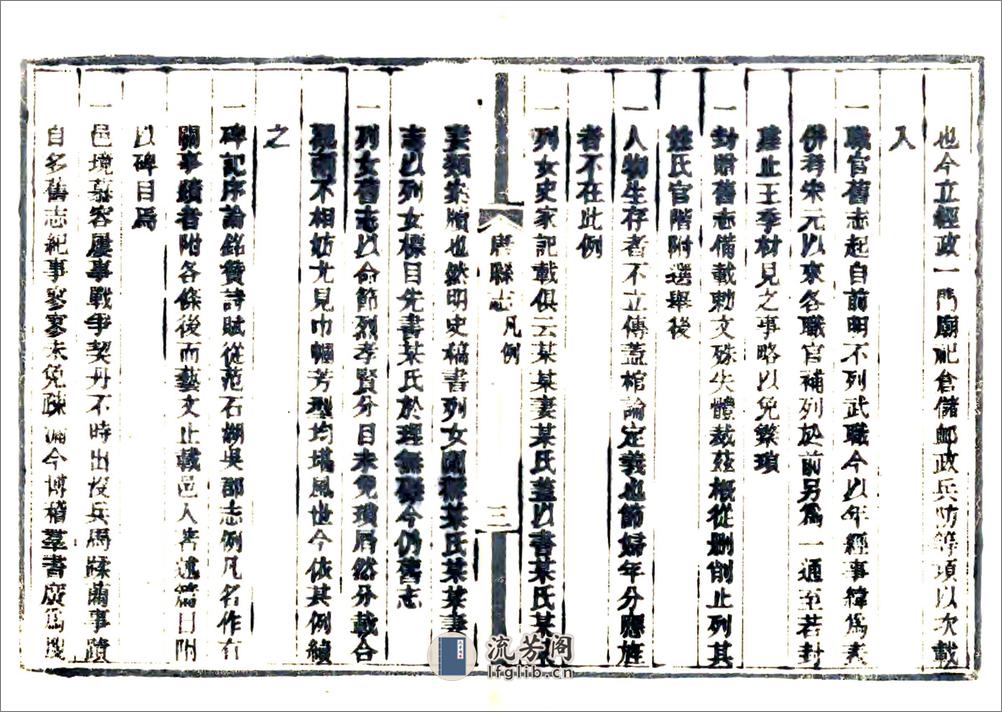 也今立經政一門廟祀倉儲郵政兵防等項以次載
入
一職官舊志起自前明不列武職今以年經事緯為表
併考宋元以來各職官補列於前另為一通至若封
建止王李材見之事略以免繁瑣
一封贈舊志備載勅文殊失體裁茲概從刪削止列其
姓氏官階附選舉後
一人物生存者不立傳蓋棺論定義也節婦年分應旌
者不在此例
一列女史家記載俱云某某妻某氏蓋以書某氏某某
妻類案牘也然明史稿書列女間稱某氏某某妻
志以列女標目先書某氏於理無礙今仍舊志
一列女舊志以命節烈孝賢分目未免瑣屑然分載合
觀兩不相妨尤見巾幗芳型均堪風世今依其例續
之
一碑記序論銘贊詩賦從范石湖吳郡志例凡名作有
關事蹟者附各條後而藝文止載邑人著述篇目附
以碑目焉
一邑境慕容屢事戰爭契丹不時出沒兵馬蹂躪事蹟
自多舊志紀事寥寥未免疎漏今博稽羣書廣為
唐縣志
凡例
三
流芳阁
lrglib.cn